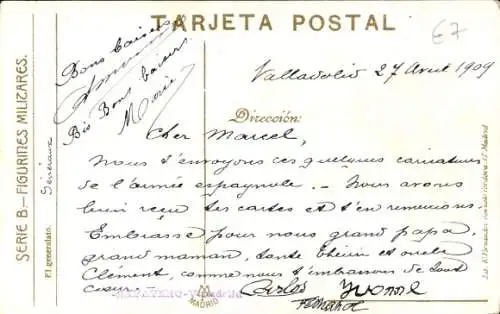 TARJETA POSTAL
€7
Bons baisers
Bis Bons baisers
Marie
Valladolid 27 Avril 1909
Dirección:
Cher Marcel,
Nous t'envoyons ces quelques caricatures
de l'armée espagnole. - Nous avons
bien reçu tes cartes et t'en remercions.
Embrasse pour nous grand papa,
grand maman, tante et oncle
Clément, comme nous t'embrassons de tout
coeur.
Carlos Yvonne
Fernande
MADRID
SERIE B.—FIGURINES MILIZARES.
El generalato.
Généraux